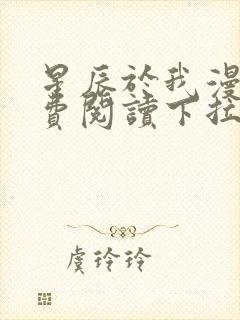 星辰於我漫
費閱讀下拉
虞玲玲